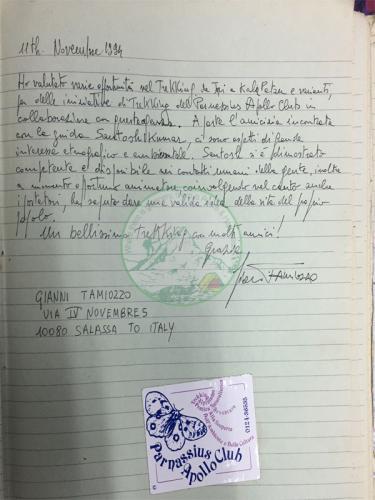 11th. Novembre 1994
Ho valutato varie opportunità nel Trekking da Jiri a Kala Pataru e varianti,
per delle iniziative di Trekking del Parnassius Apollo Club in
collaborazione con
A parte l'amicizia incontrata
con la guida Santosh Kumar, ci sono aspetti di grande
interesse etnografico e ambientale. Santosh si è dimostrato
competente e disponibile nei contatti umani della gente, inoltre
a momento opportuno animatore, coinvolgendo nel canto anche
i portatori, ha saputo dare una valida idea della vita del proprio
popolo.
Un bellissimo Trekking con molti amici!
Grazie
Gianni TAMIOZZO
GIANNI TAMIOZZO
VIA IV NOVEMBRE 5
10080 SALASSA TO ITALY
Parnassius
Apollo Club
0124-36535